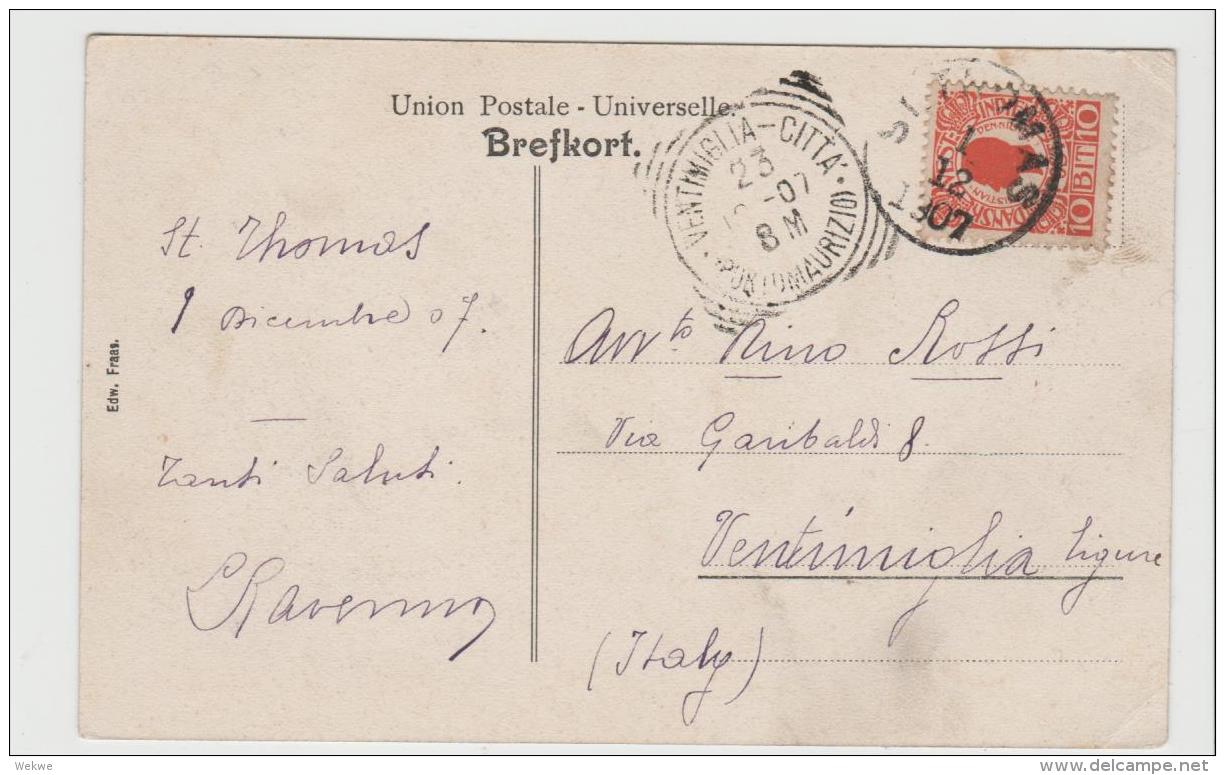 Union Postale - Universelle.
Brefkort.
St. Thomas
1 Dicembre 07.
Tanti Saluti.
Ravenna
Edw. Fraas.
VENTIMIGLIA-CITTÀ
(PORTOMAURIZIO)
23
-07
8 M
ST. THOMAS
1
12
1907
10 BIT 10
Avv.to Nino Rossi
Via Garibaldi 8.
Ventimiglia Ligure
(Italy)
Wekwe
www.delcampe.net